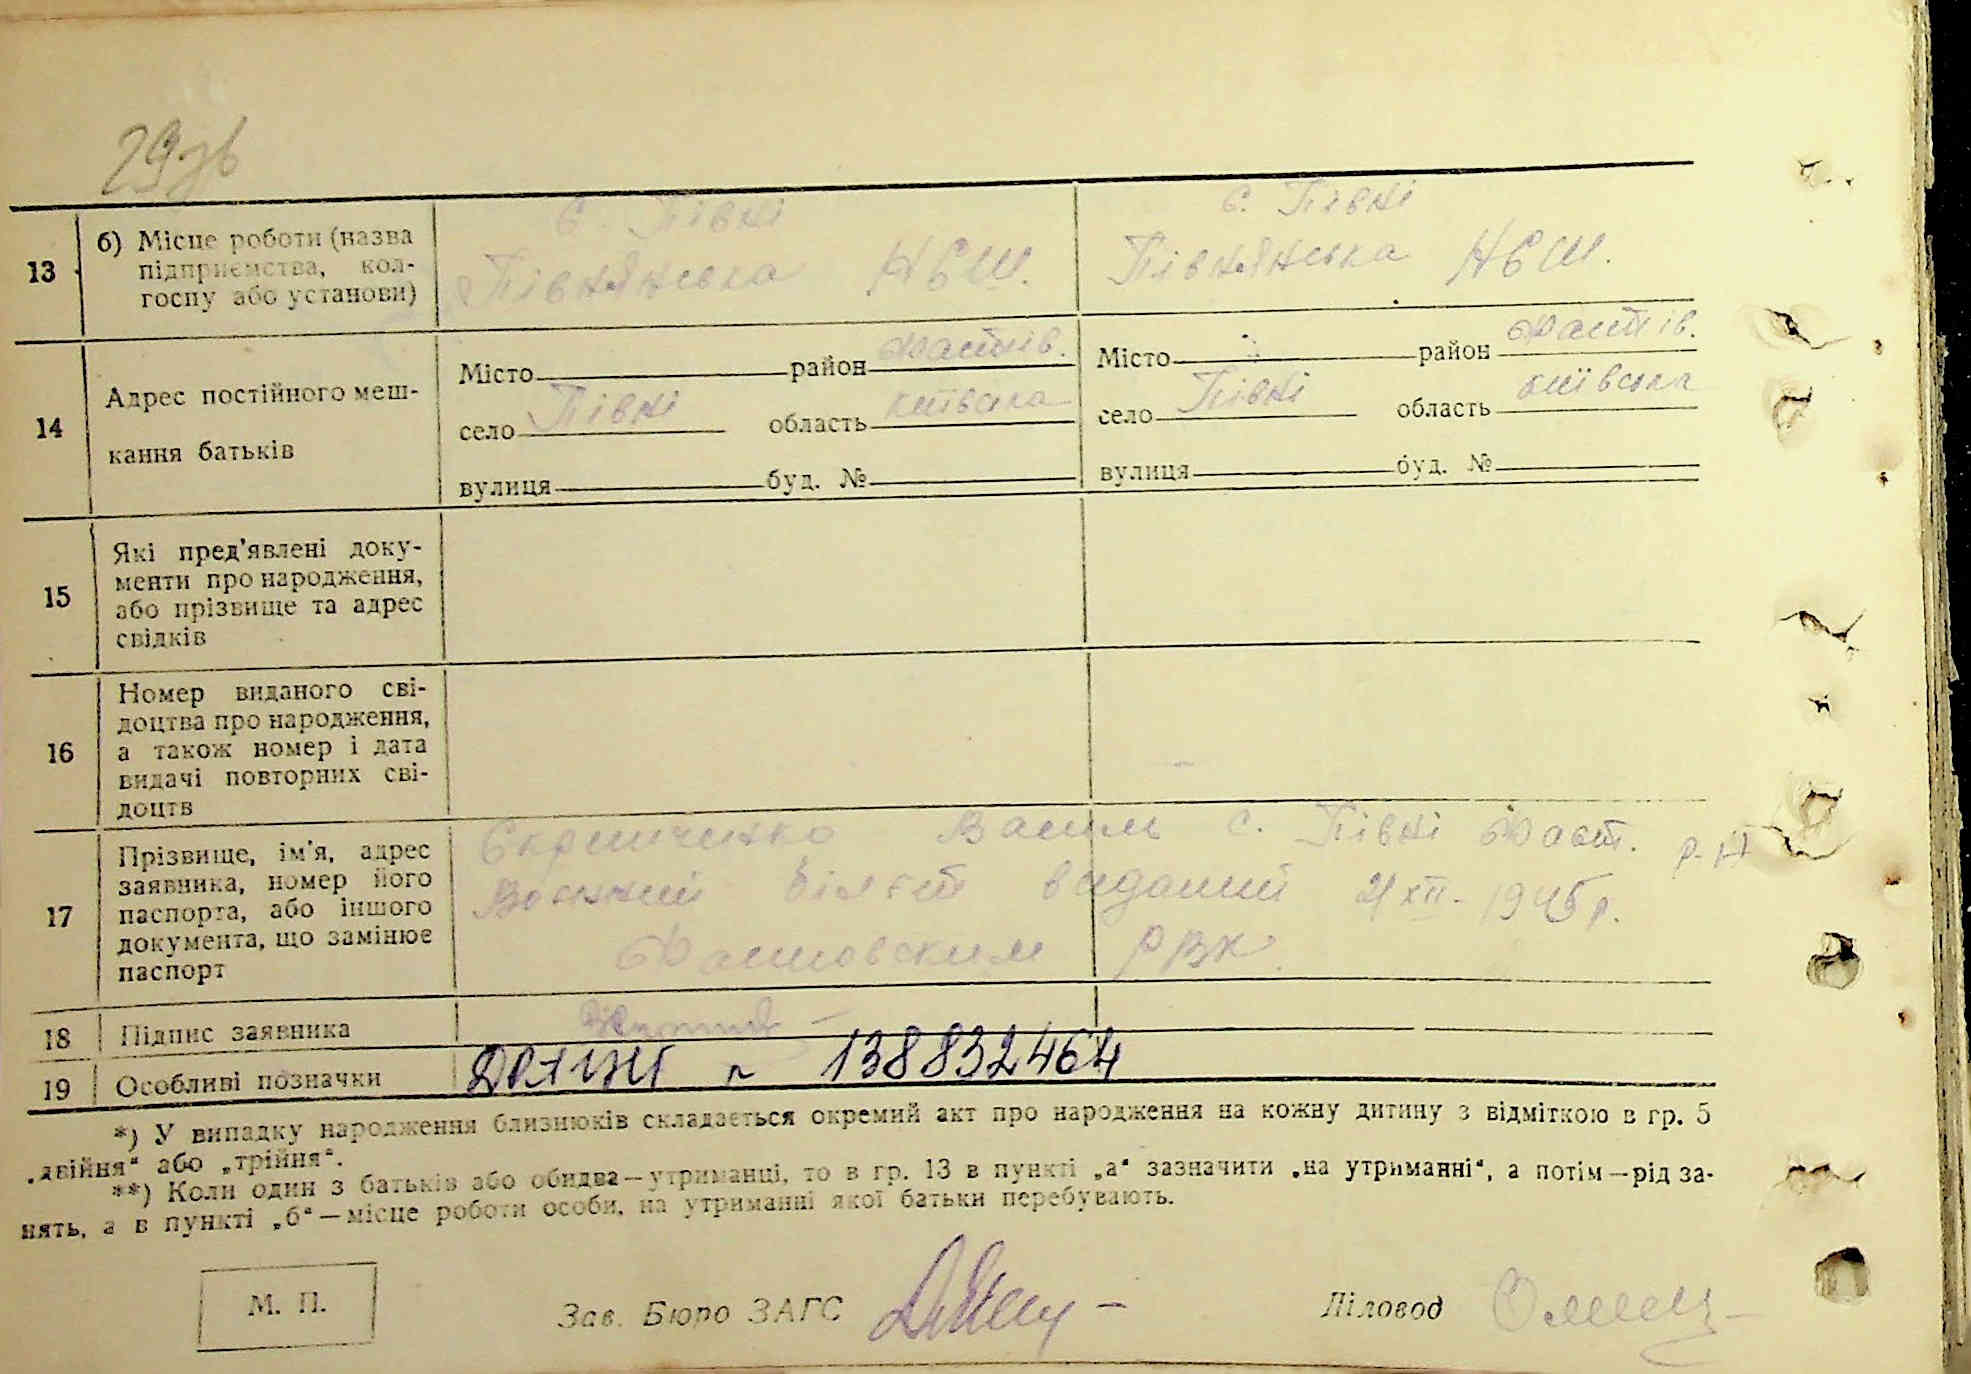 29зв
13 б) Місце роботи (назва підприємства, кол-госпу або установи)
с. Півні
Півнянська НСШ.
с. Півні
Півнянська НСШ.
14 Адрес постійного меш-
кання батьків
Місто район Фастів.
село Півні область Київська
вулиця буд. №
Місто район Фастів.
село Півні область Київська
вулиця буд. №
15 Які пред'явлені доку-
менти про народження,
або прізвище та адрес
свідків
16 Номер виданого сві-
доцтва про народження,
а також номер і дата
видачі повторних сві-
доцтв
17 Прізвище, ім'я, адрес
заявника, номер його
паспорта, або іншого
документа, що замінює
паспорт
Василь с. Півні Фаст. р-н
Воєнний білєт виданий 21 XII - 1945 р.
Фастовским РВК.
18 Підпис заявника
19 Особливі позначки
138832464
*) У випадку народження близнюків складається окремий акт про народження на кожну дитину з відміткою в гр. 5
„двійня“ або „трійня“.
**) Коли один з батьків або обидва—утриманці, то в гр. 13 в пункті „а“ зазначити „на утриманні“, а потім—рід за-
нять, а в пункті „б“—місце роботи особи, на утриманні якої батьки перебувають.
М. П.
Зав. Бюро ЗАГС
Діловод